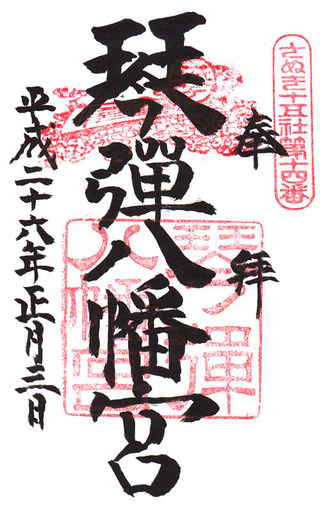 さぬき十五社第
奉拝
琴彈八幡宮
琴彈
八幡宮
平成二十六年正月三日